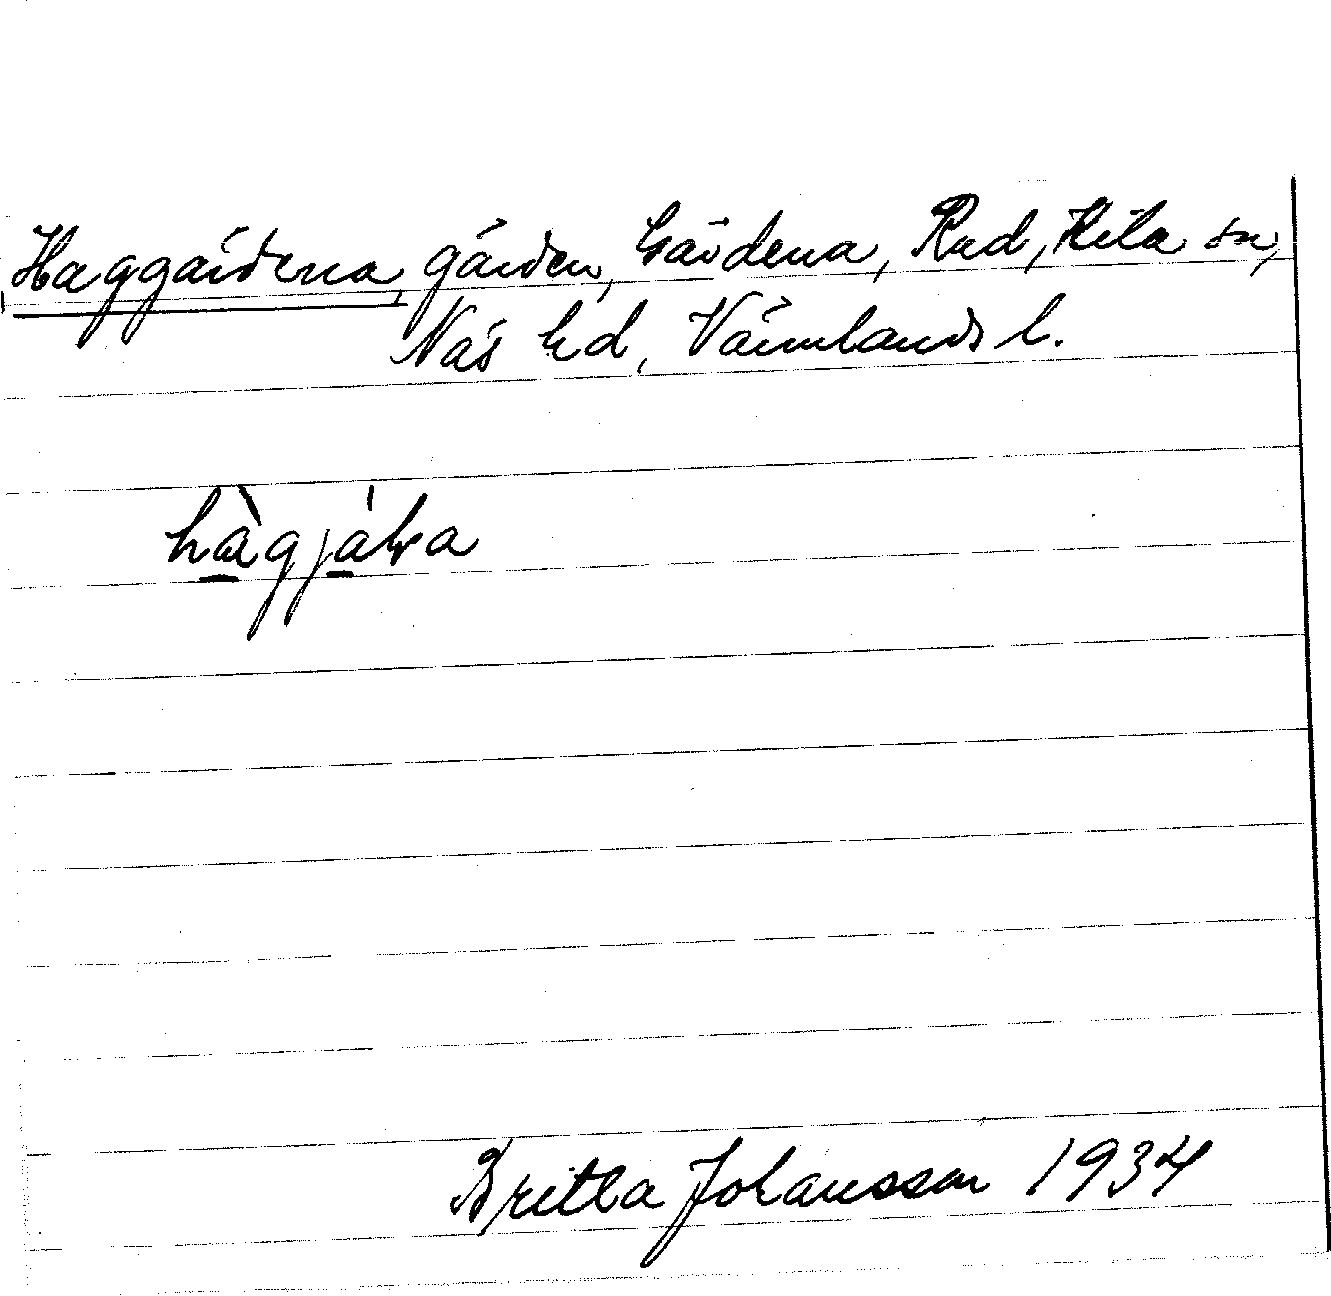 Haggärdena, gärden, Gärdena, Rud, Kila sn,
Näs hd, Värmlands l.
hàgjáɫa
Britta Johansson 1934